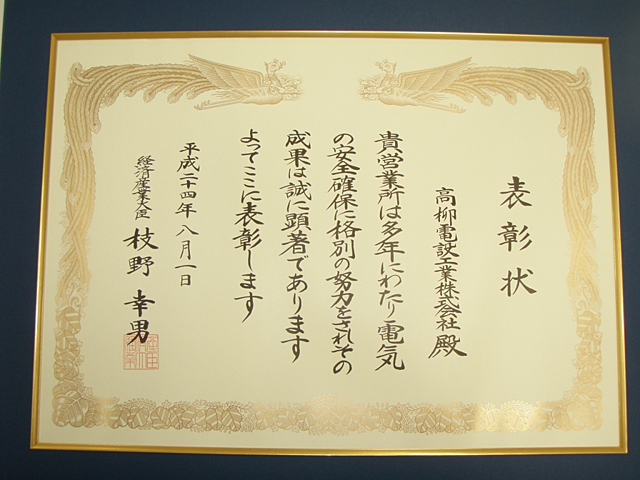 表彰状
高柳電設工業株式会社 殿
貴営業所は多年にわたり電気
の安全確保に格別の努力をされその
成果は誠に顕著であります
よってここに表彰します
平成二十四年八月一日
経済産業大臣 枝野 幸男